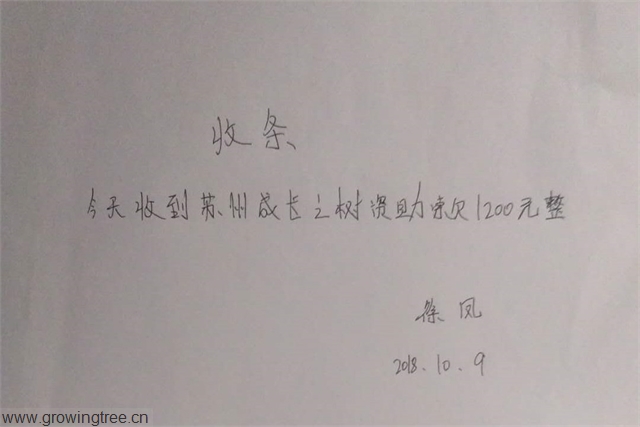 收条
今天收到苏州成长之树资助款1200元整
徐凤
2018.10.9
www.growingtree.cn